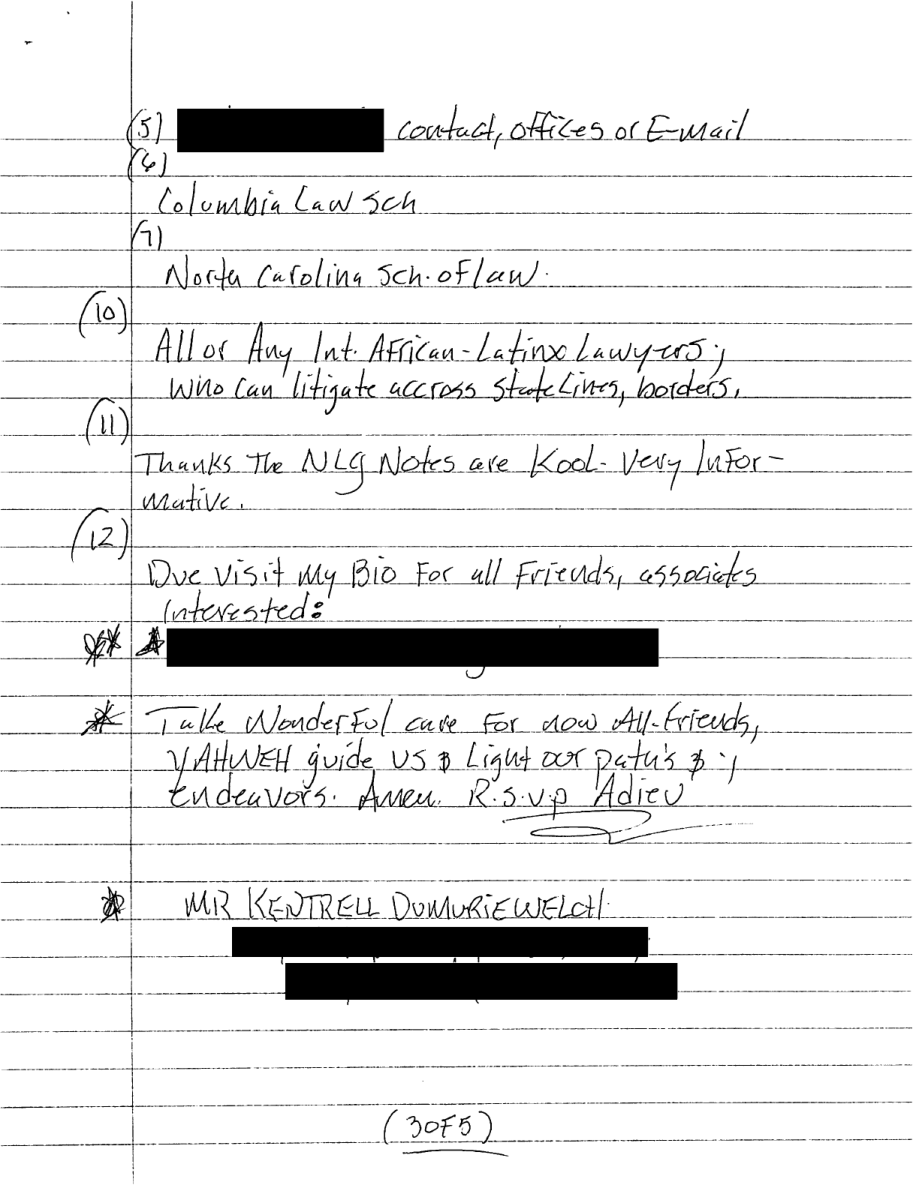 (5) contact, offices or E-mail
(6)
Columbia Law Sch
(7)
North Carolina Sch. of law.
(10)
All or Any Int. African-Latinx Lawyers;
Who Can litigate accross State Lines, borders.
(11)
Thanks The NLG Notes are Kool- Very Infor-
mative.
(12)
Due Visit My Bio For all Friends, associates
Interested:
Take Wonderful care For now All-Friends,
YAHWEH guide US & Light our path's & ;
Endeavors. Amen. R.s.v.p Adieu
MR KENTRELL DOMURIE WELCH
(3 OF 5)